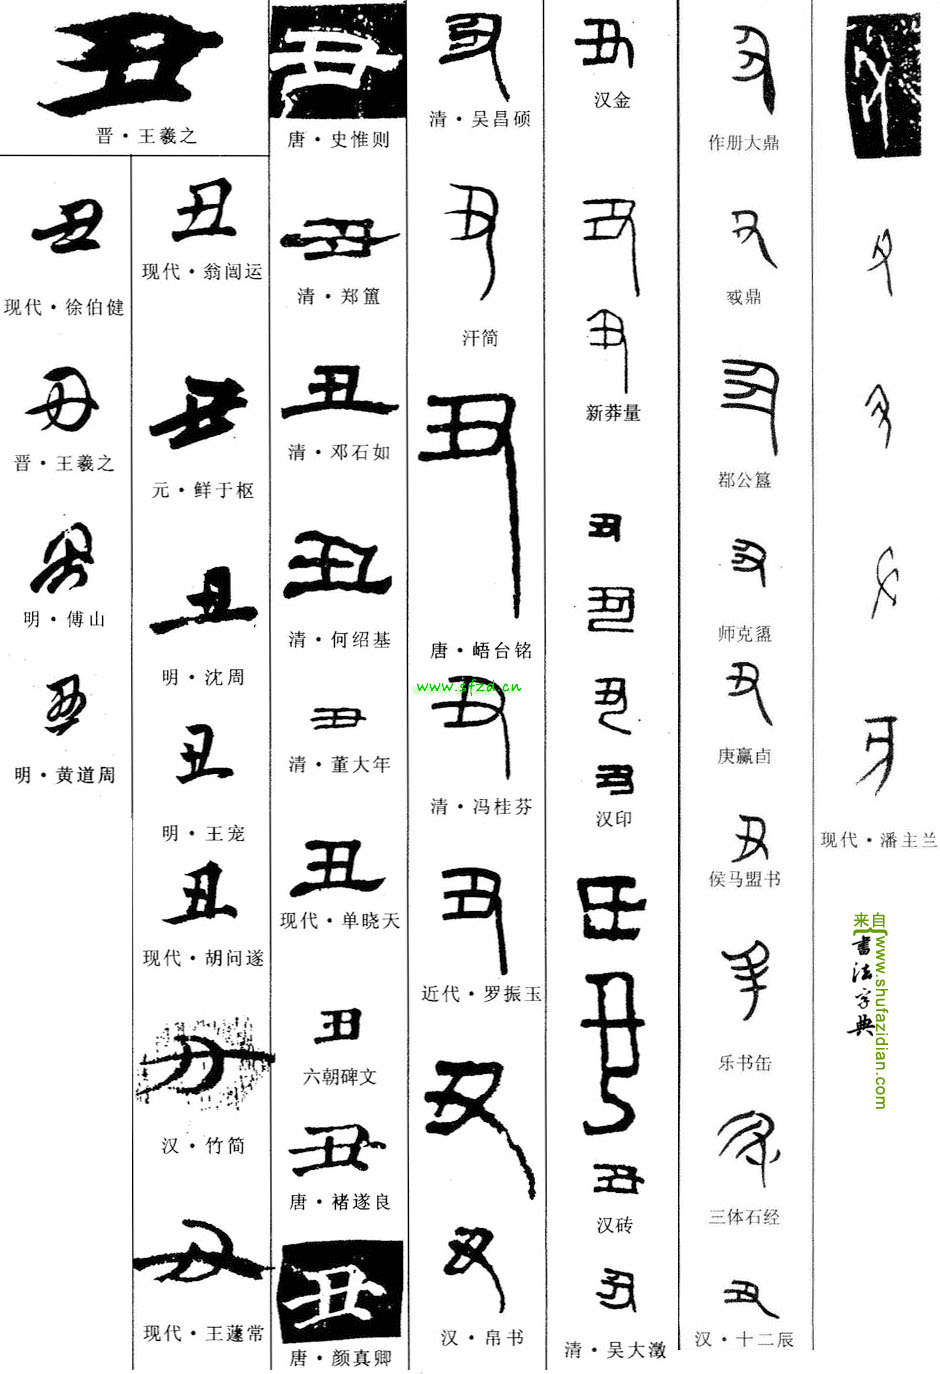 丑
晋·王羲之
丑
现代·徐伯健
丑
晋·王羲之
丑
明·傅山
丑
明·黄道周
丑
现代·翁闿运
丑
元·鲜于枢
丑
明·沈周
丑
明·王宠
丑
现代·胡问遂
丑
汉·竹简
丑
现代·王蘧常
丑
唐·史惟则
丑
清·郑簠
丑
清·邓石如
丑
清·何绍基
丑
清·董大年
丑
现代·单晓天
丑
六朝碑文
丑
唐·褚遂良
丑
唐·颜真卿
丑
清·吴昌硕
丑
汗简
丑
唐·峿台铭
www.sfzd.cn
丑
清·冯桂芬
丑
近代·罗振玉
丑
丑
汉·帛书
丑
汉金
丑
丑
新莽量
丑
丑
丑
丑
汉印
丑
丑
丑
汉砖
丑
清·吴大澂
丑
作册大鼎
丑
鼎
丑
公簋
丑
师克盨
丑
庚嬴卣
丑
侯马盟书
丑
乐书缶
丑
三体石经
丑
汉·十二辰
丑
丑
丑
丑
丑
现代·潘主兰
来自
书法字典
www.shufazidian.com